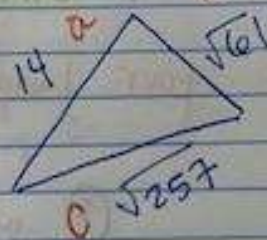 a
14
√61
√257
c